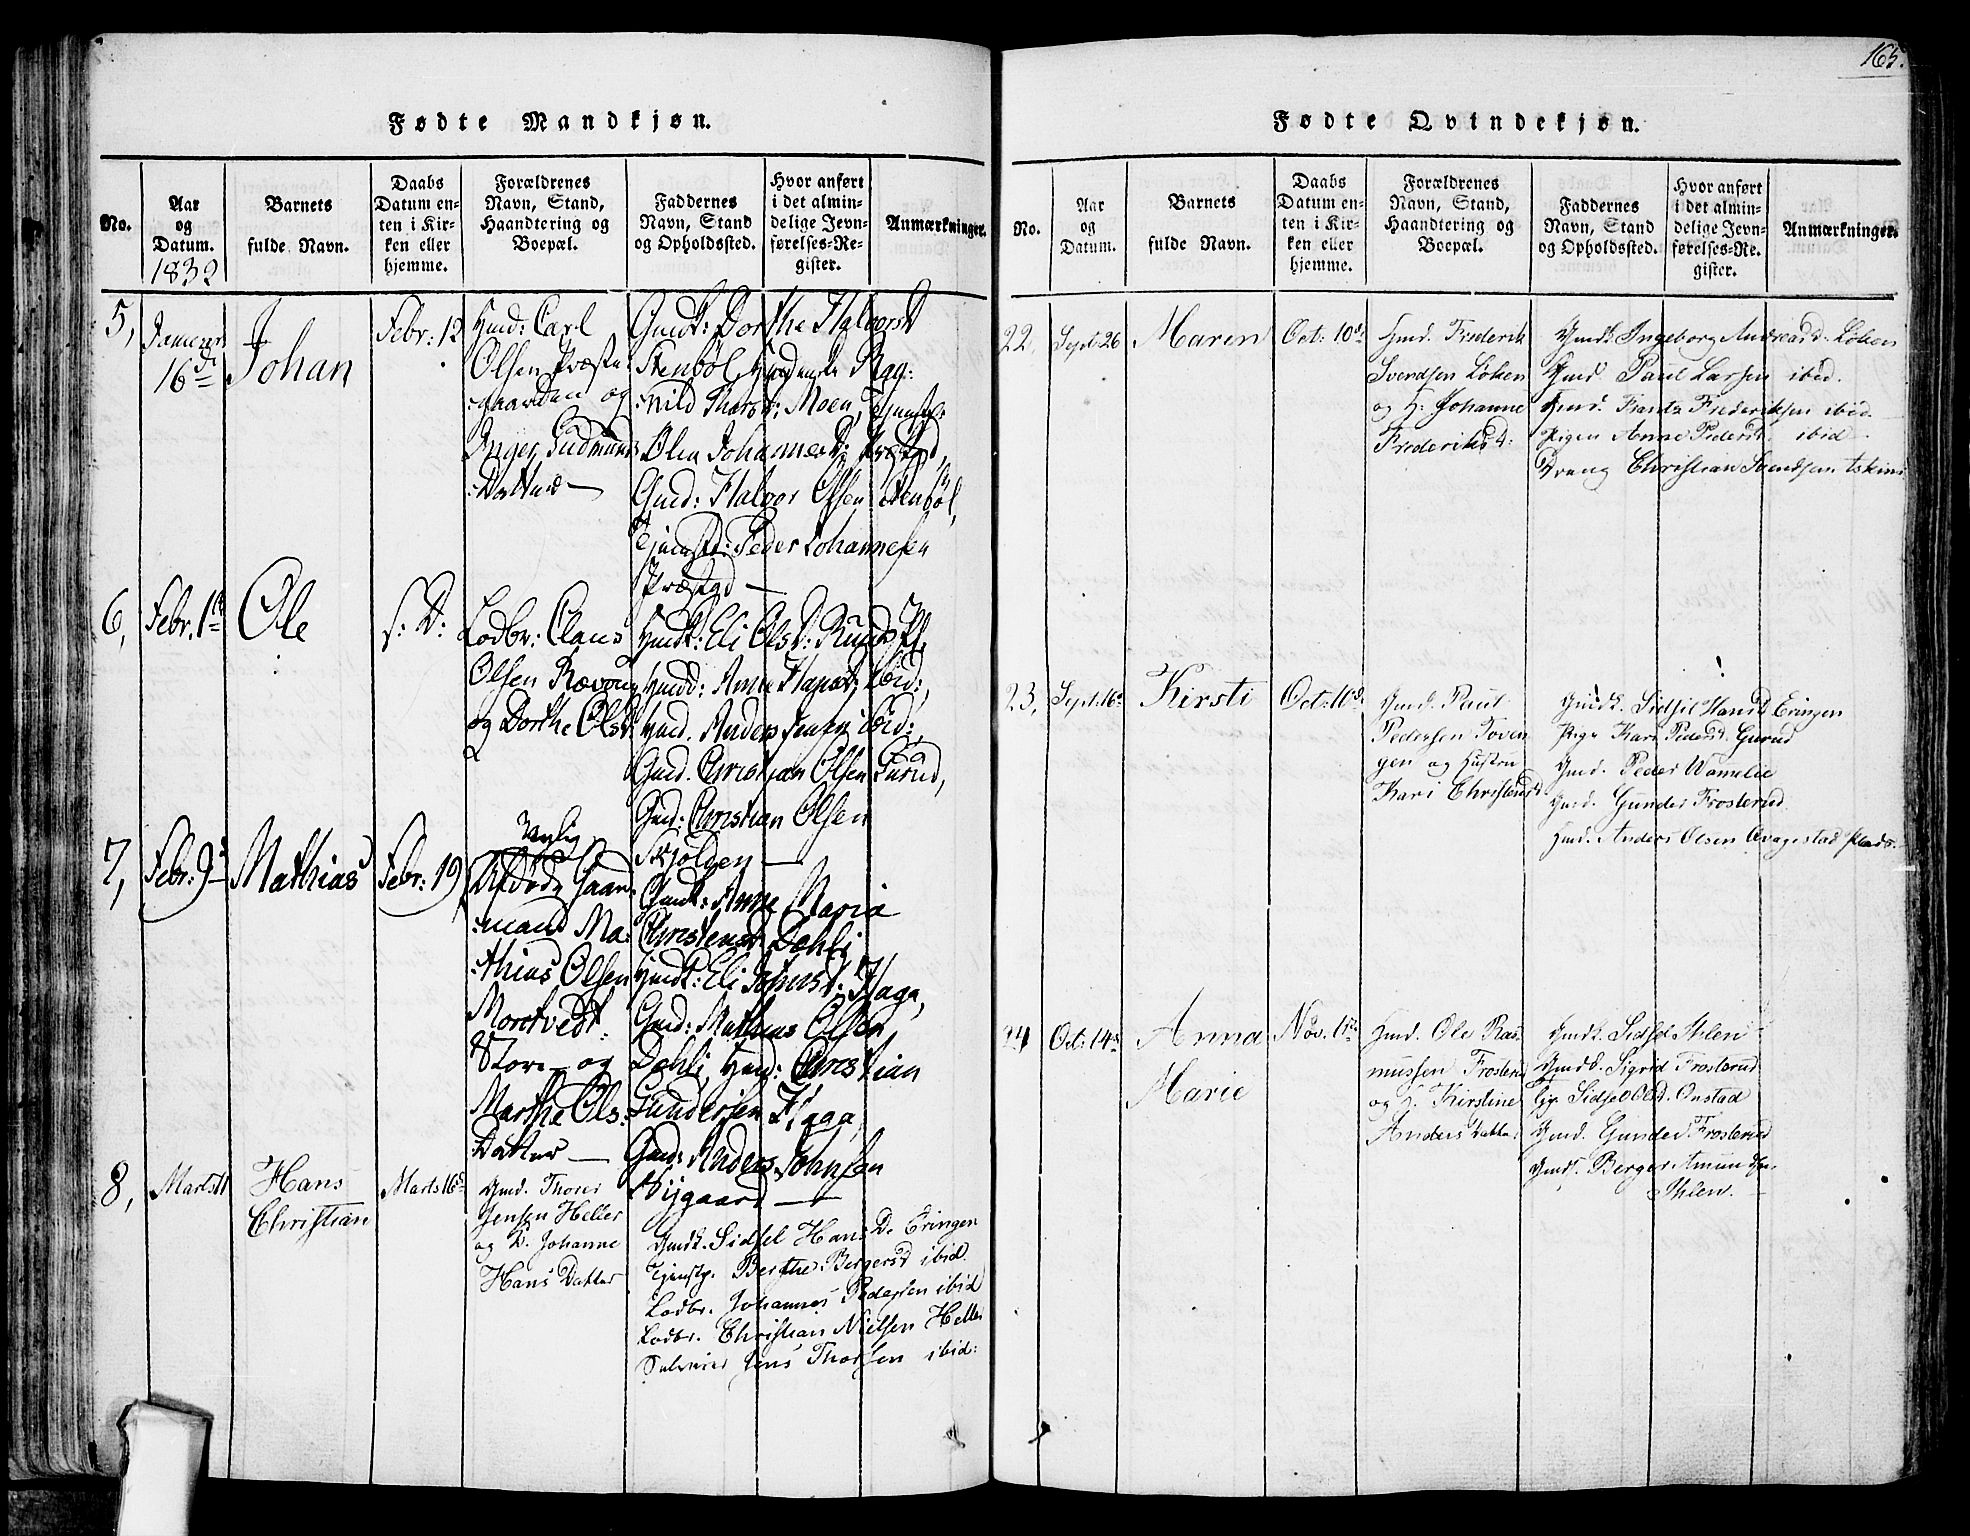 165.
Fødte Mandkjøn.
No.
Aar
og
Datum.
1832
Barnets
fulde Navn.
Daabs
Datum en-
ten i Kir-
ken eller
hjemme.
Forældrenes
Navn, Stand,
Haandtering og
Boepæl.
Faddernes
Navn, Stand
og Opholdssted.
Hvor anført
i det almin-
delige Jevn-
førelses-Re-
gister.
Anmærkninger.
5,
Januar
16de
Johan
Febr: 12
Hmd: Carl
Olsen Præste-
gaarden og
Inger Gudmunds
Datter
Gmdk: Dorthe Halvorsd
Stenbøl, Hmdenke Rag-
nild Thorsd: Moen, Tjenestp:
Olea Johannesd: Præstgd,
Gmd: Halvor Olsen Stenbøl,
Tjenestd: Peder Johannesen
Præstgd
6,
Febr. 1ste
Ole
s: D:
Lodbr: Claus
Olsen Rævoug
og Dorthe Olsd
Hmdk: Eli Olsd: Ruuds Ei,
Hmdd: Anne Hansd: ibid:,
Hmd. Anders Jensen ibid:,
Gmd. Christian Olsen Gurud,
Gmd: Christian Olsen
Skjolden
7,
Febr: 9de
Mathias
Febr: 19
Afdøde Gaard-
mand Ma-
thias Olsen
Mortvedt
Store og
Marthe Ols-
Datter
Gmdk: Anne Maria
Christensd Dæhli
Hmdk: Eli Johnsd: Haga,
Gmd: Mathias Olsen
Dæhli, Hmd: Christian
Gundersen Haga,
Gmd: Anders Johnsen
Nygaard
8,
Marts 11
Hans
Christian
Marts 16d
Gmd. Thorer
Jensen Heller
og K. Johanne
Hans Datter
Gmdk. Sidsel Hans D. Eringen
Tjenstp. Berthe Bergersd ibid
Lodbr. Johannes Pedersen ibid
Lodbr. Christian Nielsen Heller
Jens Thorsen ibid:
Fødte Qvindekjøn.
No.
Aar
og
Datum.
Barnets
fulde Navn.
Daabs
Datum en-
ten i Kir-
ken eller
hjemme.
Forældrenes
Navn, Stand,
Haandtering og
Boepæl.
Faddernes
Navn, Stand
og Opholdssted.
Hvor anført
i det almin-
delige Jevn-
førelses-Re-
gister.
Anmærkninger.
22,
Sept: 26
Maren
Oct: 10de
Hmd. Frederik
Svendsen Løken
og H. Johanne
Frederiksd:
Gmdk. Ingeborg Andreasd. Løken
Gmd. Paul Larsen ibid.
Hmd. Frantz Frederiksen ibid.
Pigen Anne Pedersd. ibid
Dreng Christian Svendsen Askim
23,
Sept: 16
Kirsti
Oct: 10d.
Gmd. Paul
Pedersen Toven
gen og Hustru
Kari Christensd
Gmdk. Sidsil Hansd Eringen
Pige Kari Pedersd. Gurud
Gmd. Peder Wamelie
Gmd. Gunder Frosterud
Hmd. Anders Olsen Qvagestad Plads.
24
Oct: 14
Anna
Marie
Nov. 1ste
Hmd. Ole Ras
mussen Frosterud
og K. Kirstine
Anders Datter
Gmdk. Sidsel Ihlen
Gmdk. Sigrid Frosterud
Pig Sidsel Olsd. Onstad
Gmd. Gunder Frosterud
Gmds. Berger Amundsen
Ihlen.